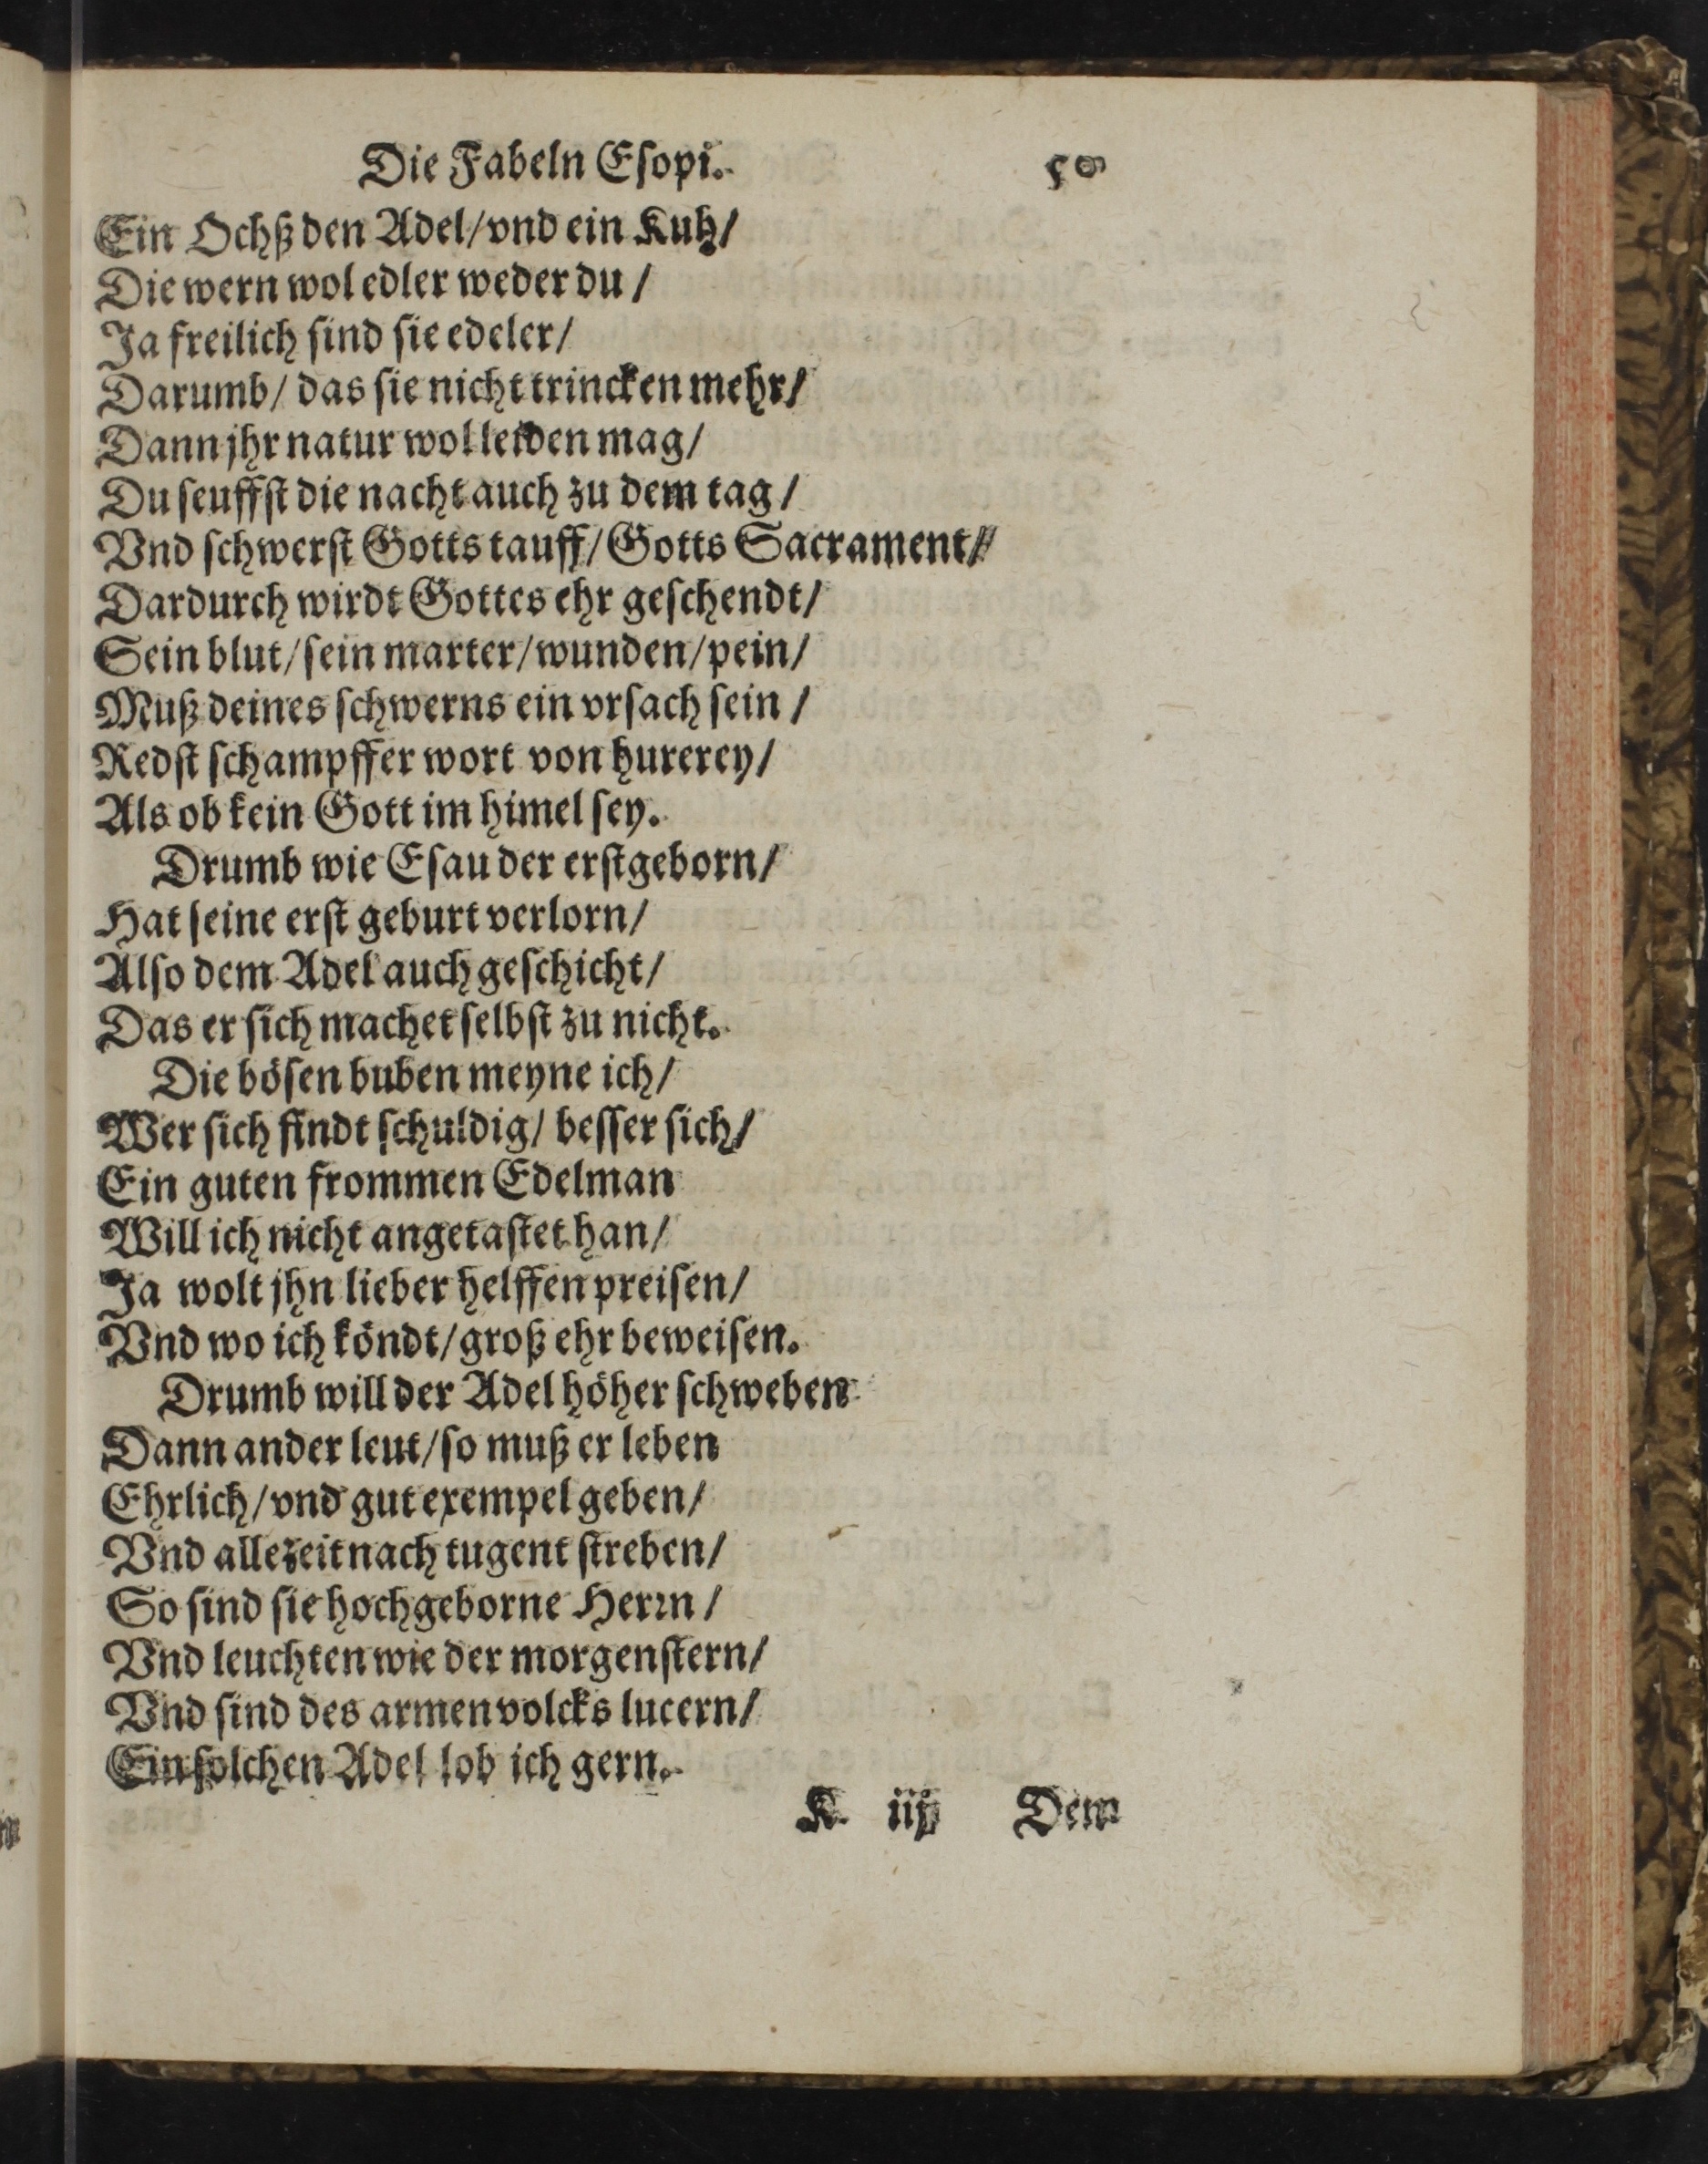 Die Fabeln Eſopi.
Ein Ochß den Adel/ vnd ein Kuh/
Die wern wol edler weder du /
Ja freilich ſind ſie edeler/
Darumb/ das ſie nicht trincken mehr/
Dann jhr natur wol leiden mag/
Du ſeuffſt die nacht auch zu dem tag /
Vnd ſchwerſt Gotts tauff/ Gotts Sacrament/
Dardurch wirdt Gottes ehr geſchendt/
Sein blut/ ſein marter/ wunden/ pein/
Muß deines ſchwerns ein vrſach ſein /
Redſt ſchampffer wort von hurerey/
Als ob kein Gott im himel ſey.
Drumb wie Eſau der erſtgeborn/
Hat ſeine erſt geburt verlorn/
Alſo dem Adel auch geſchicht/
Das er ſich machet ſelbſt zu nicht.
Die böſen buben meyne ich/
Wer ſich findt ſchuldig/ beſſer ſich/
Ein guten frommen Edelman
Will ich nicht angetaſtet han/
Ja wolt jhn lieber helffen preiſen/
Vnd wo ich köndt/ groß ehr beweiſen.
Drumb will der Adel höher ſchweben
Dann ander leut/ ſo muß er leben
Ehrlich/ vnd gut exempel geben/
Vnd allezeit nach tugent ſtreben/
So ſind ſie hochgeborne Herrn /
Vnd leuchten wie der morgenſtern/
Vnd ſind des armen volcks lucern/
Ein ſolchen Adel lob ich gern.
K iij Dem